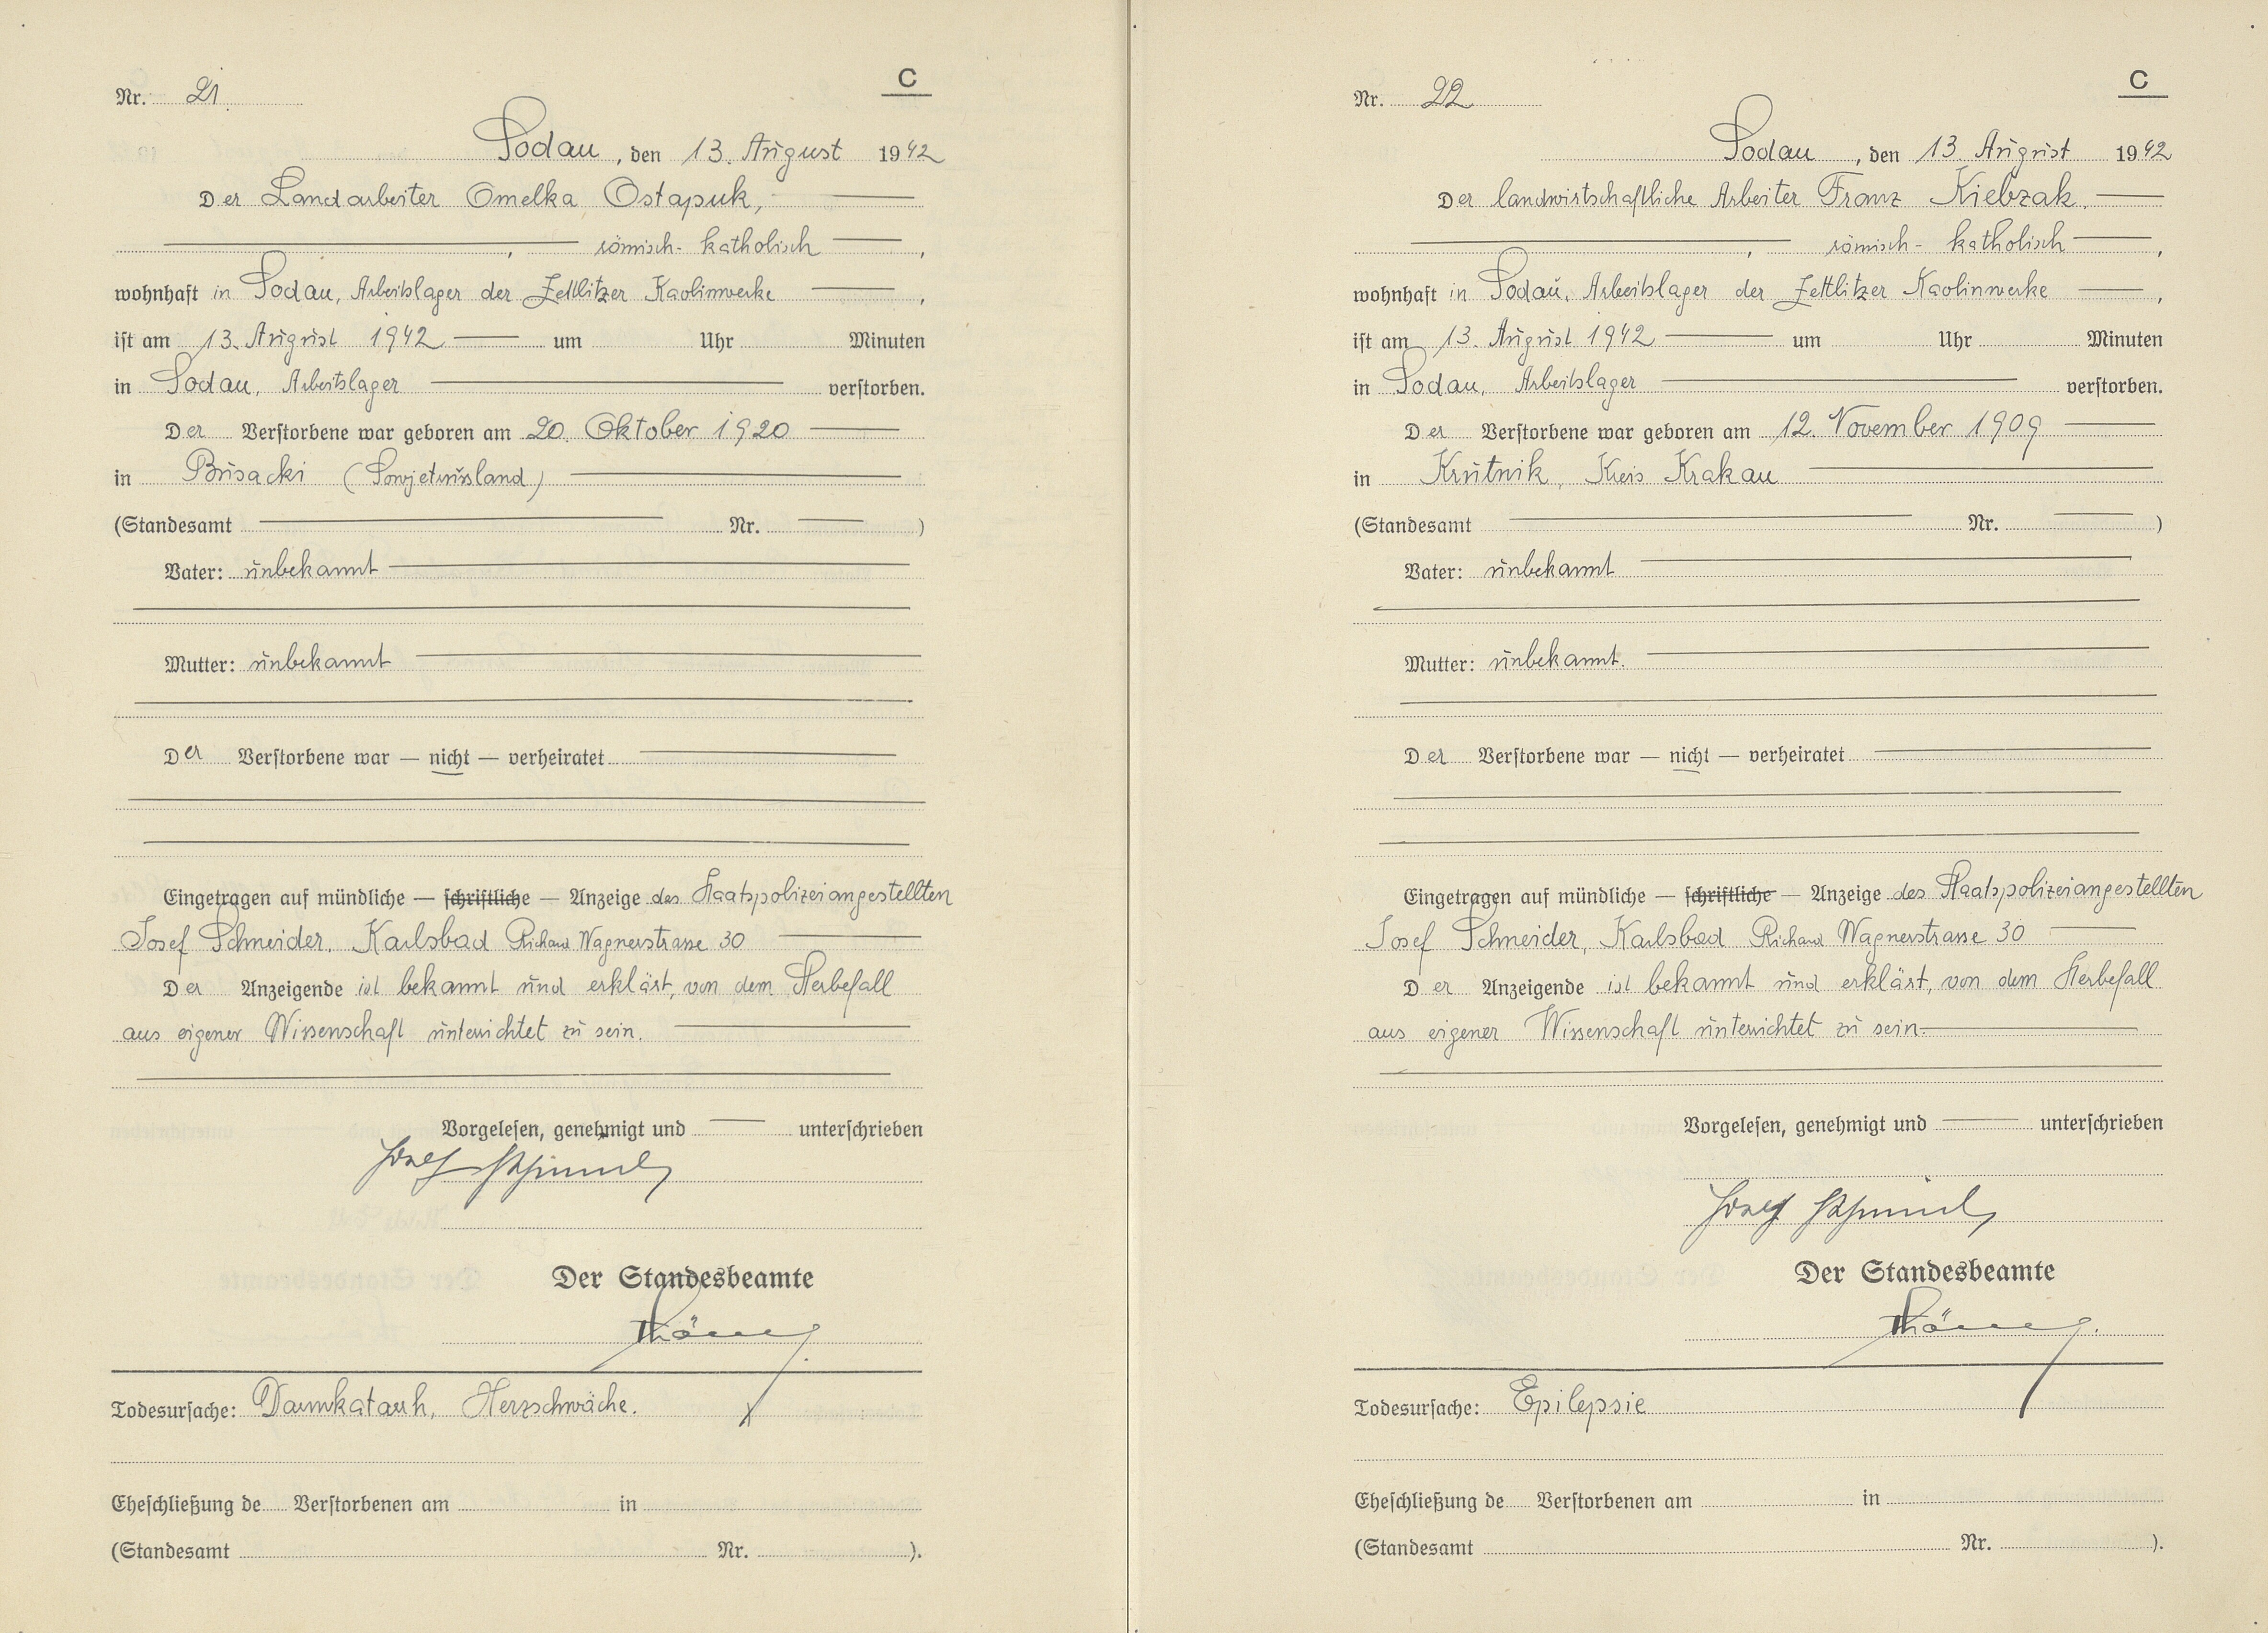 Nr. 21.
C
Sodau, den 13. August 1942
Der Landarbeiter Omelka Ostapuk,
, römisch-katholisch ,
wohnhaft in Sodau, Arbeitslager der Zettlitzer Kaolinwerke ,
ist am 13. August 1942 um Uhr Minuten
in Sodau, Arbeitslager verstorben.
Der Verstorbene war geboren am 20. Oktober 1920
in Busacki (Sowjetrussland)
(Standesamt Nr. )
Vater: unbekannt
Mutter: unbekannt
Der Verstorbene war — nicht — verheiratet
Eingetragen auf mündliche — schriftliche — Anzeige des Staatspolizeiangestellten
Josef Schneider, Karlsbad Richard Wagnerstrasse 30
Der Anzeigende ist bekannt und erklärt, von dem Sterbefall
aus eigener Wissenschaft unterrichtet zu sein.
Vorgelesen, genehmigt und unterschrieben
Josef Schneider
Der Standesbeamte
Todesursache: Darmkatarrh, Herzschwäche.
Eheschließung de Verstorbenen am in
(Standesamt Nr. ).
Nr. 22
C
Sodau, den 13. August 1942
Der landwirtschaftliche Arbeiter Franz Kiebzak,
, römisch-katholisch ,
wohnhaft in Sodau, Arbeitslager der Zettlitzer Kaolinwerke ,
ist am 13. August 1942 um Uhr Minuten
in Sodau, Arbeitslager verstorben.
Der Verstorbene war geboren am 12. November 1909
in Krutnik, Kreis Krakau
(Standesamt Nr. )
Vater: unbekannt
Mutter: unbekannt.
Der Verstorbene war — nicht — verheiratet
Eingetragen auf mündliche — schriftliche — Anzeige des Staatspolizeiangestellten
Josef Schneider, Karlsbad Richard Wagnerstrasse 30
Der Anzeigende ist bekannt und erklärt, von dem Sterbefall
aus eigener Wissenschaft unterrichtet zu sein.
Vorgelesen, genehmigt und unterschrieben
Josef Schneider
Der Standesbeamte
Todesursache: Epilepsie
Eheschließung de Verstorbenen am in
(Standesamt Nr. ).